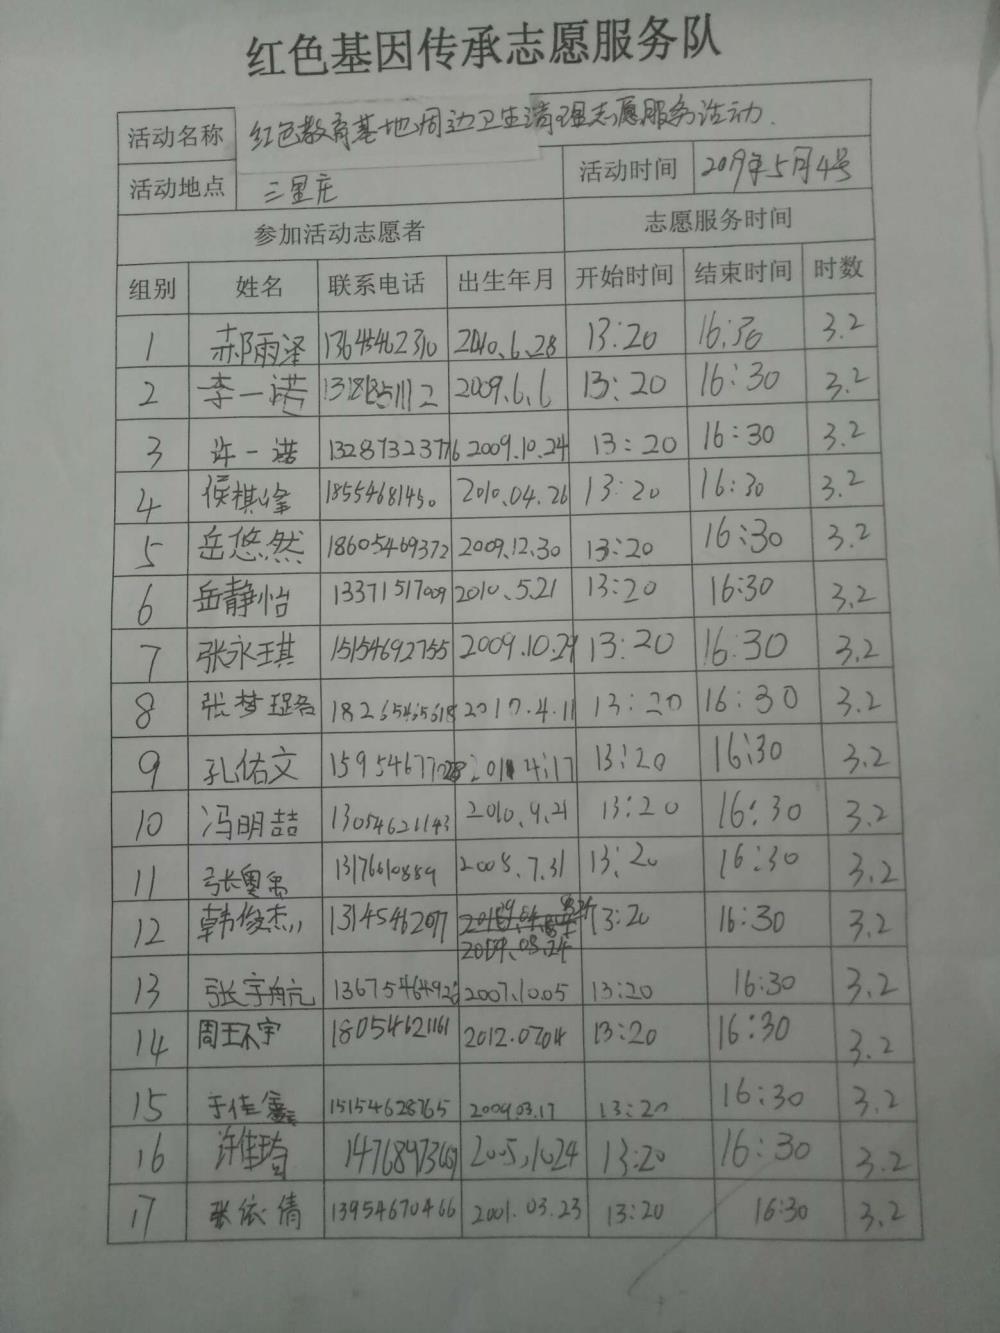 红色基因传承志愿服务队
活动名称 红色教育基地周边卫生清理志愿服务活动.
活动地点 三里庄 活动时间 2019年5月4号
参加活动志愿者 志愿服务时间
组别 姓名 联系电话 出生年月 开始时间 结束时间 时数
1 郝雨泽 13645462310 2010.6.28 13:20 16:30 3.2
2 李一诺 2009.6.6 13:20 16:30 3.2
3 许一诺 13287323776 2009.10.24 13:20 16:30 3.2
4 侯棋峰 18554681450 2010.04.26 13:20 16:30 3.2
5 岳悠然 18605469372 2009.12.30 13:20 16:30 3.2
6 岳静怡 13371517009 2010.5.21 13:20 16:30 3.2
7 张永琪 15154692755 2009.10.29 13:20 16:30 3.2
8 张梦璐 18265465618 2010.4.11 13:20 16:30 3.2
9 孔佑文 4.17 13:20 16:30 3.2
10 冯明喆 13054621143 2010.9.21 13:20 16:30 3.2
11 张奥禹 13176610889 2008.7.31 13:20 16:30 3.2
12 韩俊杰 13145462077 13:20 16:30 3.2
2009.08.24
13 张宇航 2007.10.05 13:20 16:30 3.2
14 周环宇 18054621161 2012.0704 13:20 16:30 3.2
15 于佳鑫 15154628765 2009.03.17 13:20 16:30 3.2
16 许佳琦 2005.1024 13:20 16:30 3.2
17 张依倩 13954670466 2001.03.23 13:20 16:30 3.2